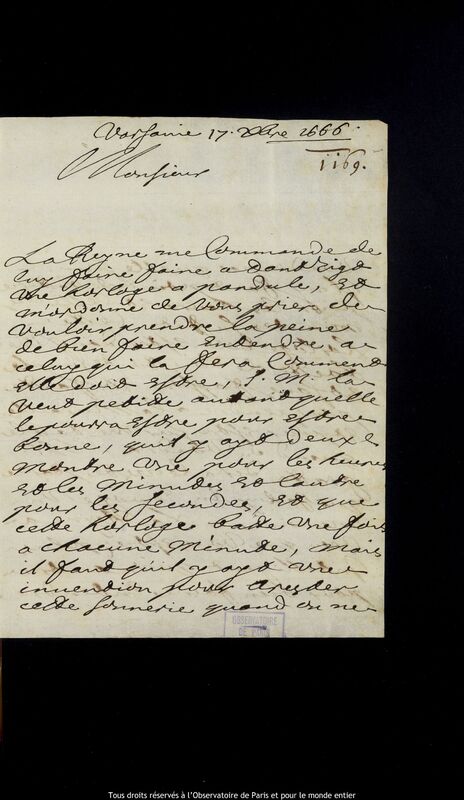 Varsavie 17. Xbre 1666.
1169.
Monsieur
La Reyne me Commande de
luy faire faire a Dantzigt
une horloge a pandule, et
m'ordonne de vous prier de
vouloir prendre la peine
de bien faire entendre a
celuy qui la fera Comment
elle doit estre, S. M. la
veut petite autant quelle
le poura estre pour estre
bonne, quil y ayt deux
montre une pour les heures
et les minutes et lautre
pour les secondes, et que
cette horloge batte une fois
a chacune minute, mais
il faut quil y ayt une
invention pour arester
cette sonnerie quand on ne
OBSERVATOIRE
DE PARIS
Tous droits réservés à l'Observatoire de Paris et pour le monde entier